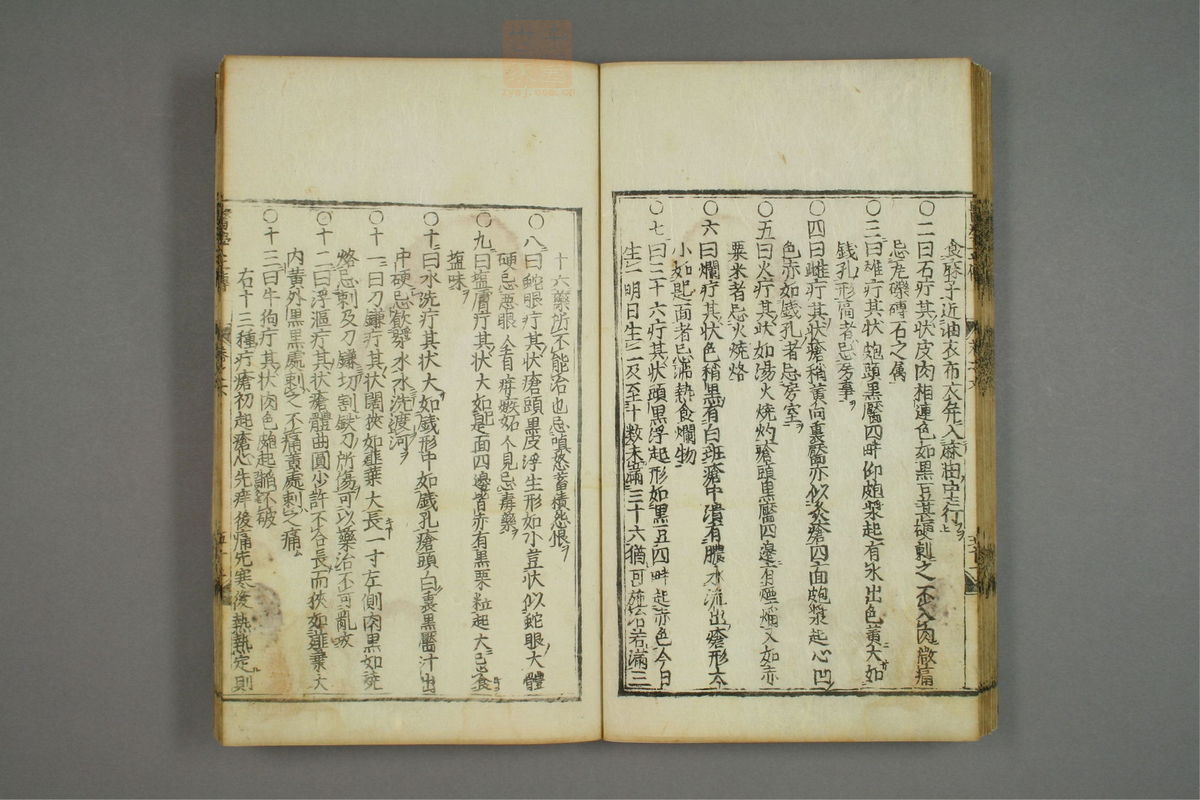 食豚子近油衣布衣并入麻油中走行
〇二曰石疔其状皮肉相連色如黑豆甚硬刺之不入肉微痛
忌瓦礫磚石之属
〇三曰雄疔其状疱頭黑靨四畔仰疱漿起有水出色黄大如
錢孔形高者忌房事
〇四曰雌疔其状瘡稍黄向裏靨亦似灸瘡四面疱漿起心凹
色赤如錢孔者忌房室
〇五曰火疔其状如湯火燒灼瘡頭黑靨四邊有煙爛又如赤
粟米者忌火燒烙
〇六曰爛疔其状色稍黑有白斑瘡中潰有膿水流出瘡形大
小如匙面者忌沸熱食爛物
〇七曰三十六疔其状頭黑浮起形如黑豆四畔起赤色今日
生一明日生二及至十數未滿三十六猶可若滿三
十六藥所不能治也忌嗔怒蓄積愁恨
〇八曰蛇眼疔其状瘡頭黑皮浮生形如小荳状似蛇眼大體
硬忌惡眼人看并嫉妬人見忌毒藥
〇九曰塩膚疔其状大如匙面四邊皆赤有黑粟粒起大忌食
塩味
〇十曰水洗疔其状大如錢形中如錢孔瘡頭白裏黑靨汁出
中硬忌飲水水洗渡河
〇十一曰刀鎌疔其状闊狹如韮葉大長一寸左側肉黑如燒
烙忌刺及刀鎌切割鉄刀所傷可以藥治不可亂攻
〇十二曰浮漚疔其状瘡體曲圓少許不合長而狹如韮葉大
内黄外黑黑處刺之不痛黄處刺之痛
〇十三曰牛狗疔其状肉色疱起掐不破
右十三種疔瘡初起瘡心先痒後痛先寒後熱熱定則